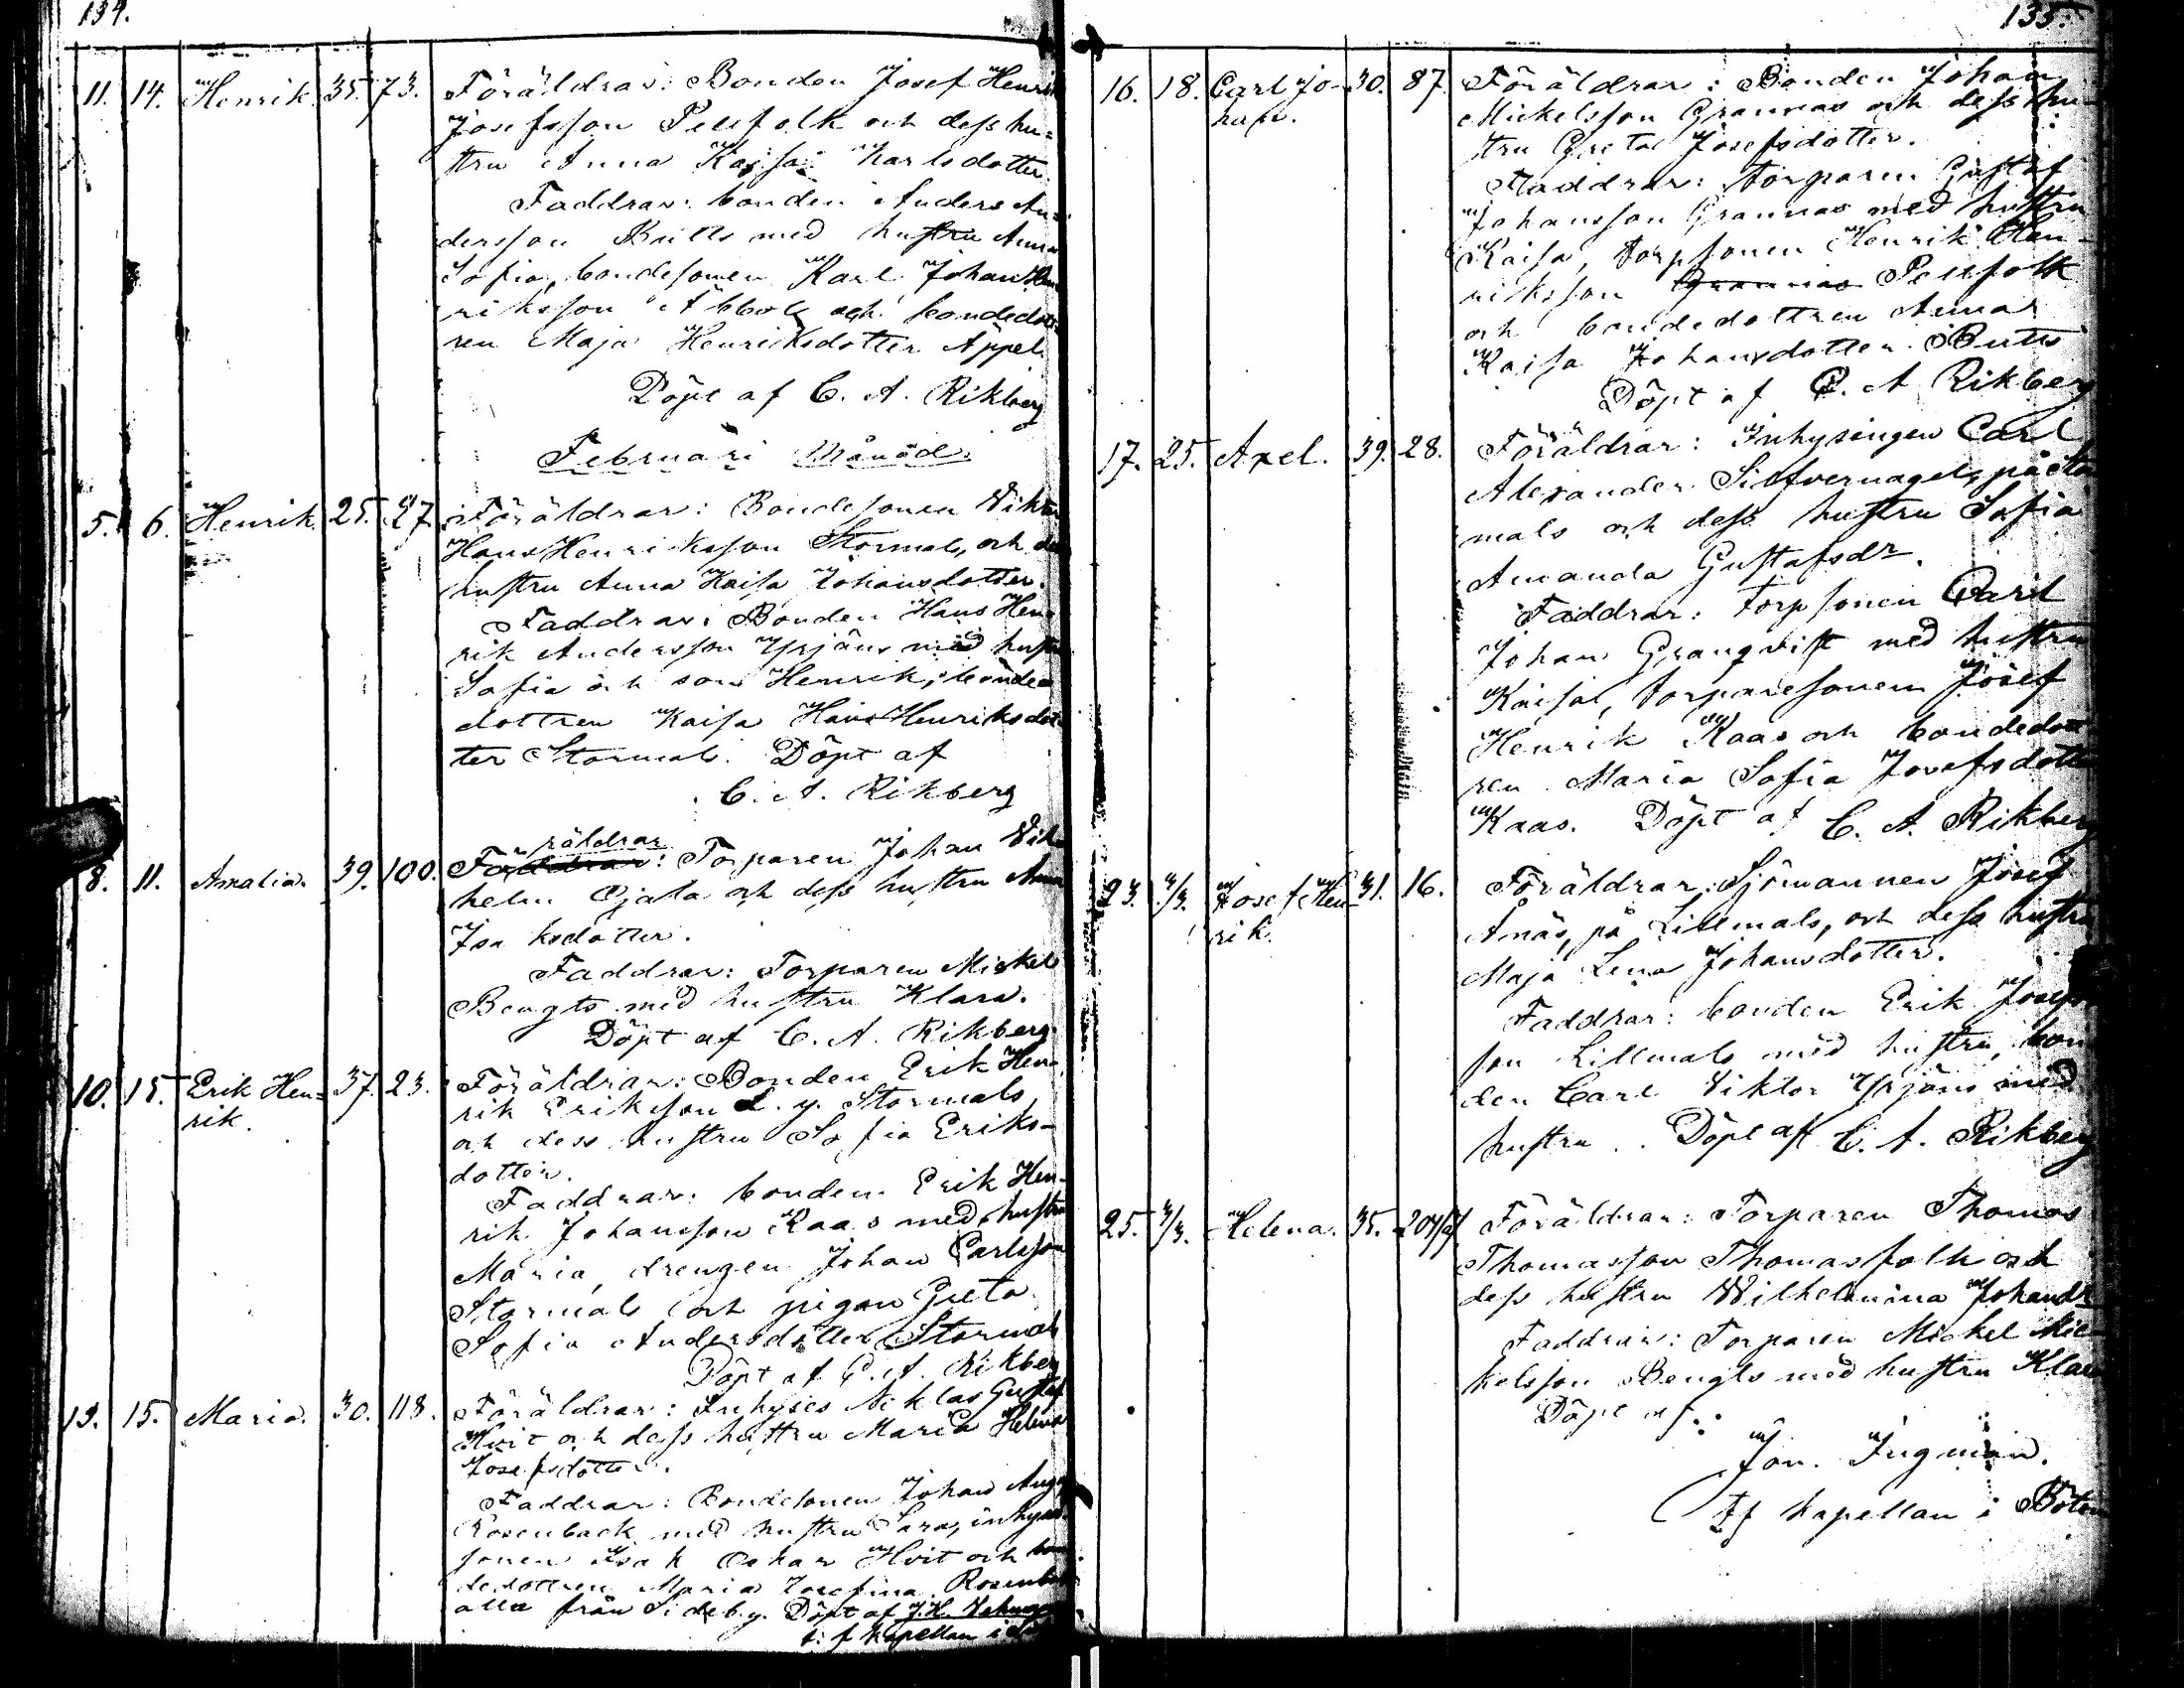 134.
11. 14. Henrik. 35. 73. Föräldrar: Bonden Josef Henrik
Josefsson Pellfolk och dess hu=
stru Anna Kajsa Karlsdotter.
Faddrar: bonden Anders An=
dersson Butts med hustru Anna
Sofia, bondesonen Karl Johan Hen
riksson Abbors och bondedott
ren Maja Henriksdotter Äppel.
Döpt af C. A. Rikberg
Februari Månad.
5. 6. Henrik 25. 27 Föräldrar: Bondesonen Viktor
Hans Henriksson Stormals, och dess
hustru Anna Kaisa Johansdotter.
Faddrar: Bonden Hans Hen
rik Andersson Yrjäns med hustru
Sofia och son Henrik, bonde
dottren Kaisa Hans Henriksdot
ter Stormals. Döpt af
C. A. Rikberg
räldrar
8. 11. Amalia. 39. 100. Faddrar: Torparen Johan Vil
helm Ojala och dess hustru Anna
Isaksdotter.
Faddrar: Torparen Mickel
Bengts med hustru Klara.
Döpt af C. A. Rikberg.
10. 15. Erik Hen= 37. 23. Föräldrar: Bonden Erik Hen
rik. rik Eriksson L. y. Stormals
och dess hustru Sofia Eriks-
dotter.
Faddrar: bonden Erik Hen-
rik Johansson Kaas med hustru
Maria, drengen Johan Carlsson
Stormals och pigan Greta
Sofia Andersdotter Stormals
Döpt af C. A. Rikberg
13. 15. Maria. 30. 118. Föräldrar: Inhyses Niklas Gustaf
Hvit och dess hustru Maria Helena
Josefsdotter.
Faddrar: Bondesonen Johan Aug
Rosenback med hustru Sara, inhyses
sonen Isak Oskar Hvit och bon
dedottren Maria Josefina Rosenback
alla från Sideby. Döpt af J. H.
t: f kapellan i
135.
16. 18. Carl Jo- 30. 87. Föräldrar: Bonden Johan
han. Mickelsson Grannas och dess hu-
stru Greta Josefsdotter.
Faddrar: torparen Gustaf
Johansson Grannas med hustru
Kaisa, torpsonen Henrik Hen-
riksson Grannas Pellfolk
och bondedottren Anna
Kaisa Johansdotter Butts
Döpt af C. A Rikberg
17. 25. Axel. 39. 28. Föräldrar: Inhysingen Carl
Alexander Silfvernagel, på Stor
mals och dess hustru Sofia
Amanda Gustafsdr.
Faddrar: torpsonen Carl
Johan Granqvist med hustru
Kaisa, torparesonen Josef
Henrik Kaas och bondedott
ren Maria Sofia Josefsdotter
Kaas. Döpt af C. A. Rikberg
23. 4/3. Josef Hen 31. 16. Föräldrar: Sjömannen Josef
rik. Ånäs, på Lillmals, och dess hustru
Maja Lena Johansdotter.
Faddrar: bonden Erik Josefs
son Lillmals med hustru, bon
den Carl Viktor Yrjäns med
hustru. Döpt af C. A. Rikberg
25. 4/3. Helena. 35. Föräldrar: Torparen Thomas
Thomasson Thomasfolk och
dess hustru Wilhelmina Johansdr
Faddrar: Torparen Mickel Mic-
kelsson Bengts med hustru Klara
Döpt af:
Jon. Ingman.
tf kapellan i Bötom